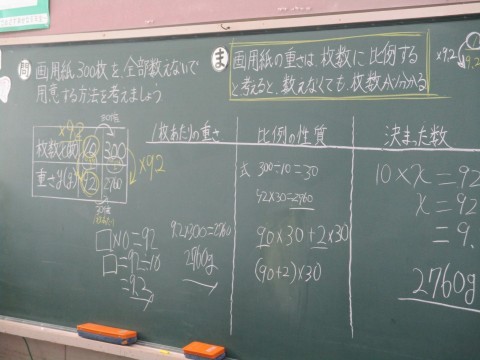 問 画用紙300枚を全部数えないで
用意する方法を考えましょう。
ま 画用紙の重さは、枚数に比例する
と考えると、数えなくても、枚数が分かる
×9.2
×9.2
30倍
枚数x(枚) 10 300
重さy(g) 92 2760
×92
30倍
1枚あたりの重さ
□×10=92
□=92÷10
=9.2
9.2×300=2760
2760g
比例の性質
式 300÷10=30
92×30=2760
90×30+2×30
(90+2)×30
決まった数
10×x=92
x=92
=9.
2760g